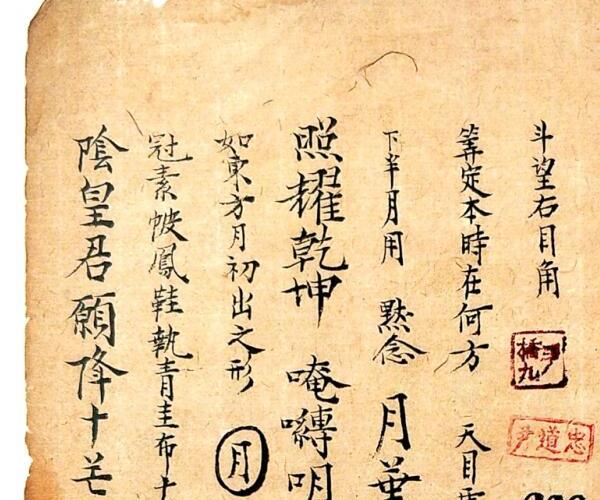 斗望右目角
等定本時在何方 天目
下半月用 黙念 月華
照耀乾坤 唵嚩明
如東方月初出之形 月
冠素帔鳳鞋執青圭布十
陰皇君願降十芒
忠道尹